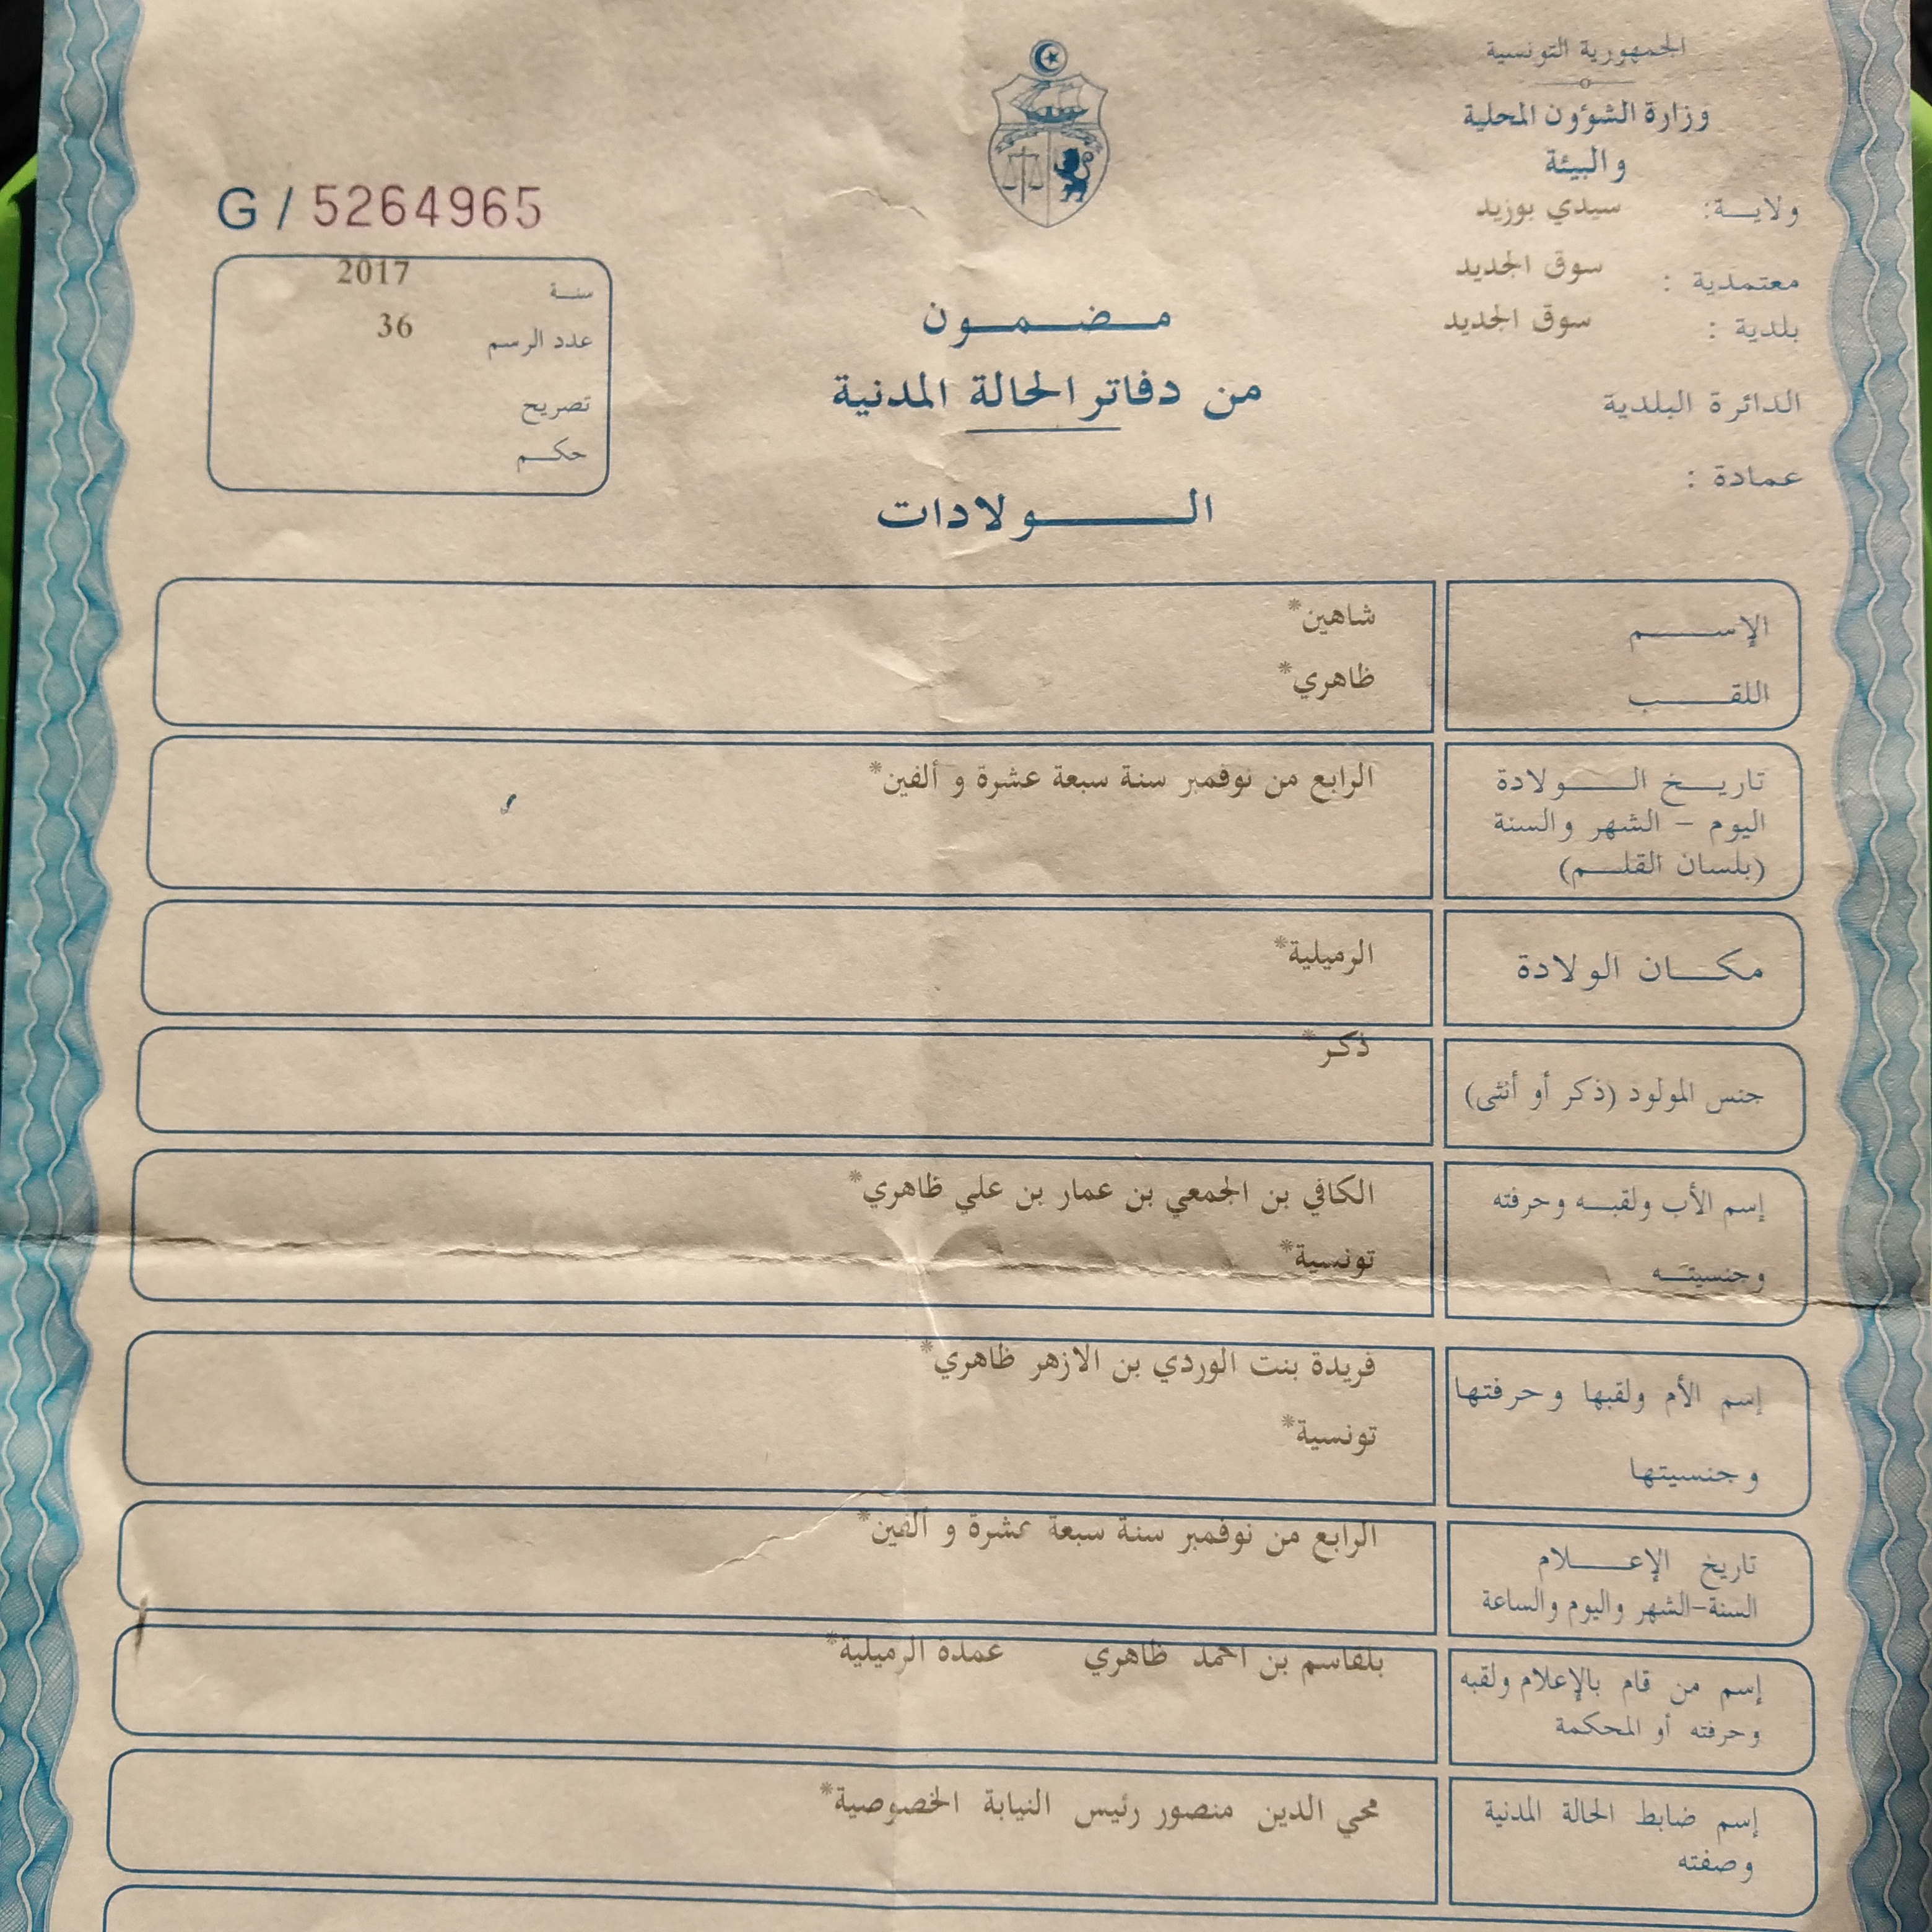 الجمهورية التونسية
وزارة الشؤون المحلية
والبيئة
ولايـــة: سيدي بوزيد
معتمدية : سوق الجديد
بلدية : سوق الجديد
الدائرة البلدية
عمادة :
G / 5264965
سنــة 2017
عدد الرسم 36
تصريح
حكــم
مــضــمــون
من دفاتر الحالة المدنية
الــــولادات
الإســــم شاهين*
اللقــــب ظاهري*
تاريــخ الـــولادة الرابع من نوفمبر سنة سبعة عشرة و ألفين*
اليوم – الشهر والسنة
(بلسان القلـــم)
مكـــان الولادة الرميلية*
جنس المولود (ذكر أو أنثى) ذكر*
إسم الأب ولقبــه وحرفته الكافي بن الجمعي بن عمار بن علي ظاهري*
وجنسيتــه تونسية*
إسم الأم ولقبها وحرفتها فريدة بنت الوردي بن الازهر ظاهري*
وجنسيتها تونسية*
تاريخ الإعـــلام الرابع من نوفمبر سنة سبعة عشرة و ألفين*
السنة–الشهر واليوم والساعة
إسم من قام بالإعلام ولقبه بلقاسم بن احمد ظاهري عمدة الرميلية*
وحرفته أو المحكمة
إسم ضابط الحالة المدنية محي الدين منصور رئيس النيابة الخصوصية*
وصفته